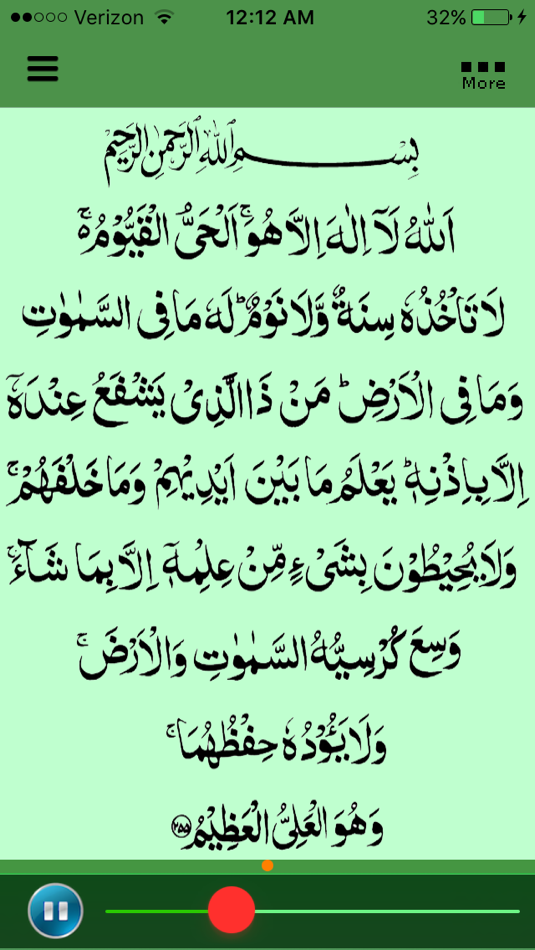 Verizon 12:12 AM 32%
More
بِسْمِ اللهِ الرَّحْمٰنِ الرَّحِيْمِ
اَللّٰهُ لَآ اِلٰهَ اِلَّا هُوَ ۚ اَلْحَىُّ الْقَيُّوْمُ ۚ
لَا تَاْخُذُهٗ سِنَةٌ وَّلَا نَوْمٌ ؕ لَهٗ مَا فِى السَّمٰوٰتِ
وَمَا فِى الْاَرْضِ ؕ مَنْ ذَا الَّذِىْ يَشْفَعُ عِنْدَهٗٓ
اِلَّا بِاِذْنِهٖ ؕ يَعْلَمُ مَا بَيْنَ اَيْدِيْهِمْ وَمَا خَلْفَهُمْ ۚ
وَلَا يُحِيْطُوْنَ بِشَىْءٍ مِّنْ عِلْمِهٖٓ اِلَّا بِمَا شَآءَ ۚ
وَسِعَ كُرْسِيُّهُ السَّمٰوٰتِ وَالْاَرْضَ ۚ
وَلَا يَـُٔوْدُهٗ حِفْظُهُمَا ۚ
وَهُوَ الْعَلِىُّ الْعَظِيْمُ ۝۲۵۵